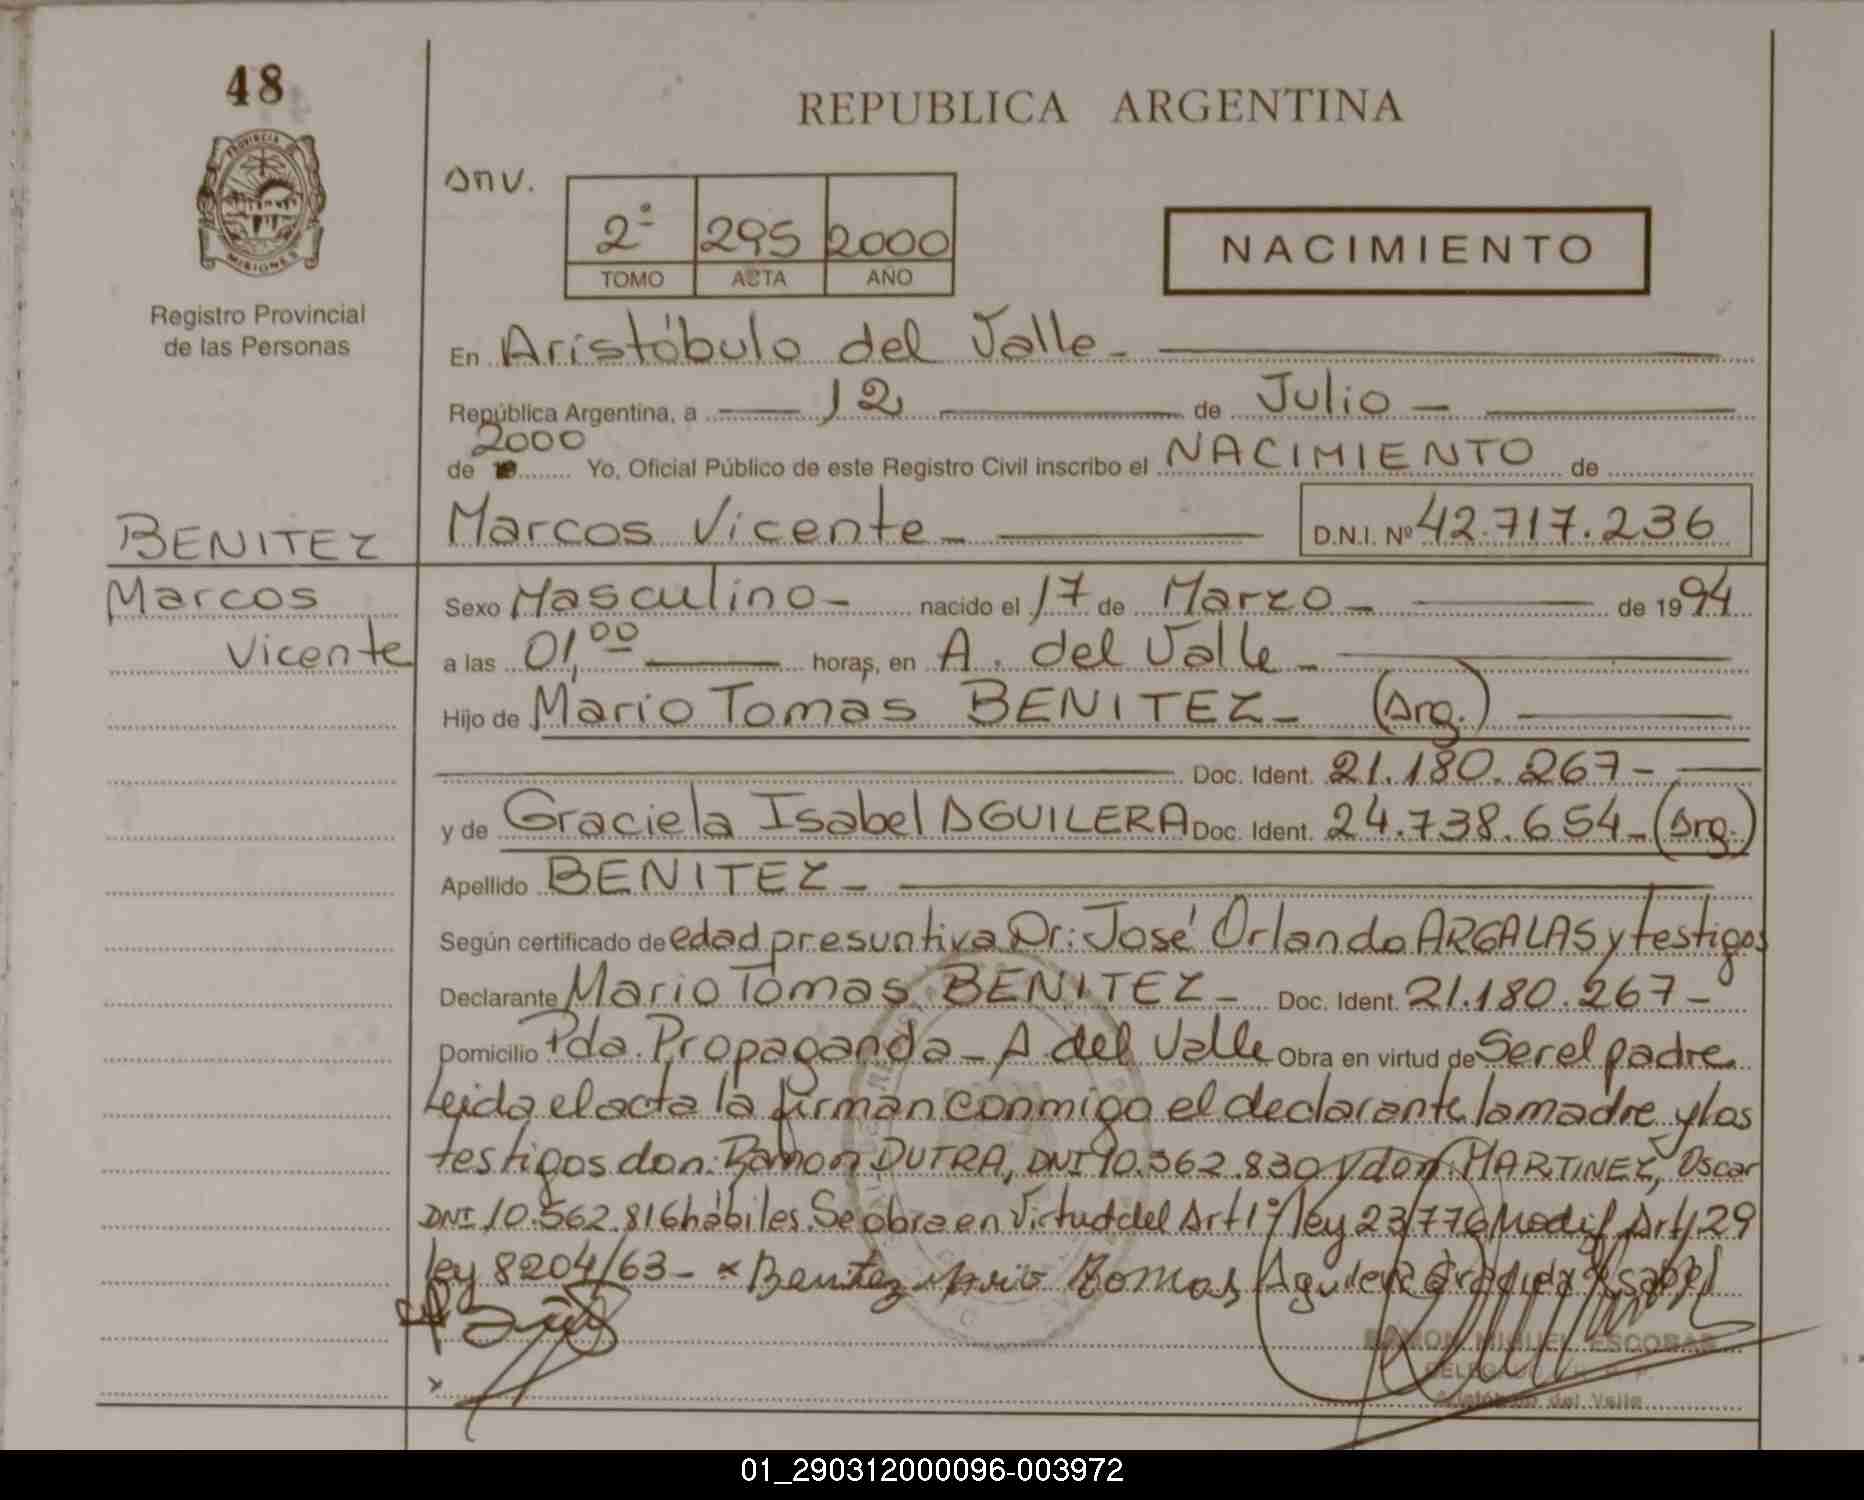 48
PROVINCIA
MISIONES
Registro Provincial
de las Personas
BENITEZ
Marcos
Vicente
REPUBLICA ARGENTINA
Anv.
2º 295 2000
TOMO ACTA AÑO
NACIMIENTO
En Aristóbulo del Valle -
República Argentina, a 12 de Julio -
2000
de 19 Yo, Oficial Público de este Registro Civil inscribo el NACIMIENTO de
Marcos Vicente - D.N.I. Nº 42.717.236
Sexo Masculino - nacido el 17 de Marzo - de 1994
a las 01,00 horas, en A. del Valle -
Hijo de Mario Tomas BENITEZ - (Arg.)
Doc. Ident. 21.180.267 -
y de Graciela Isabel AGUILERA Doc. Ident. 24.738.654 - (Arg.)
Apellido BENITEZ -
Según certificado de edad presuntiva Dr: José Orlando ARGALAS y testigos
Declarante Mario Tomas BENITEZ - Doc. Ident. 21.180.267 -
Domicilio Pda. Propaganda - A del Valle Obra en virtud de Ser el padre
Leida el acta la firman conmigo el declarante, la madre y los
testigos don: Ramon DUTRA, DNI 10.362.830 y don: MARTINEZ, Oscar
DNI 10.562.816 hábiles. Se obra en Virtud del Art 1º ley 23776 Modif Art 29
ley 8204/63 - x Benitez Mario Tomas Aguilera Graciela Isabel
RAMON MIGUEL ESCOBAR
Aristóbulo del Valle
01_290312000096-003972